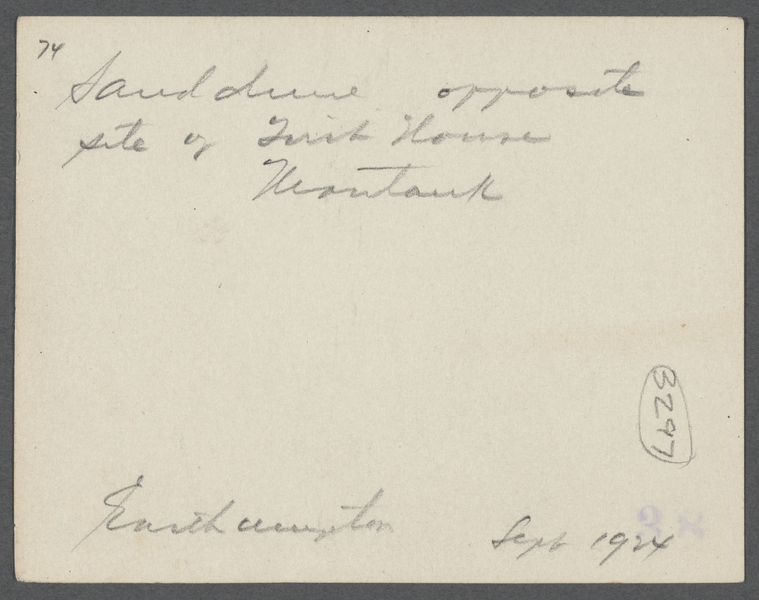 74
Sand dune opposite
site of First House
Montauk
3297
Easthampton
Sept 1924